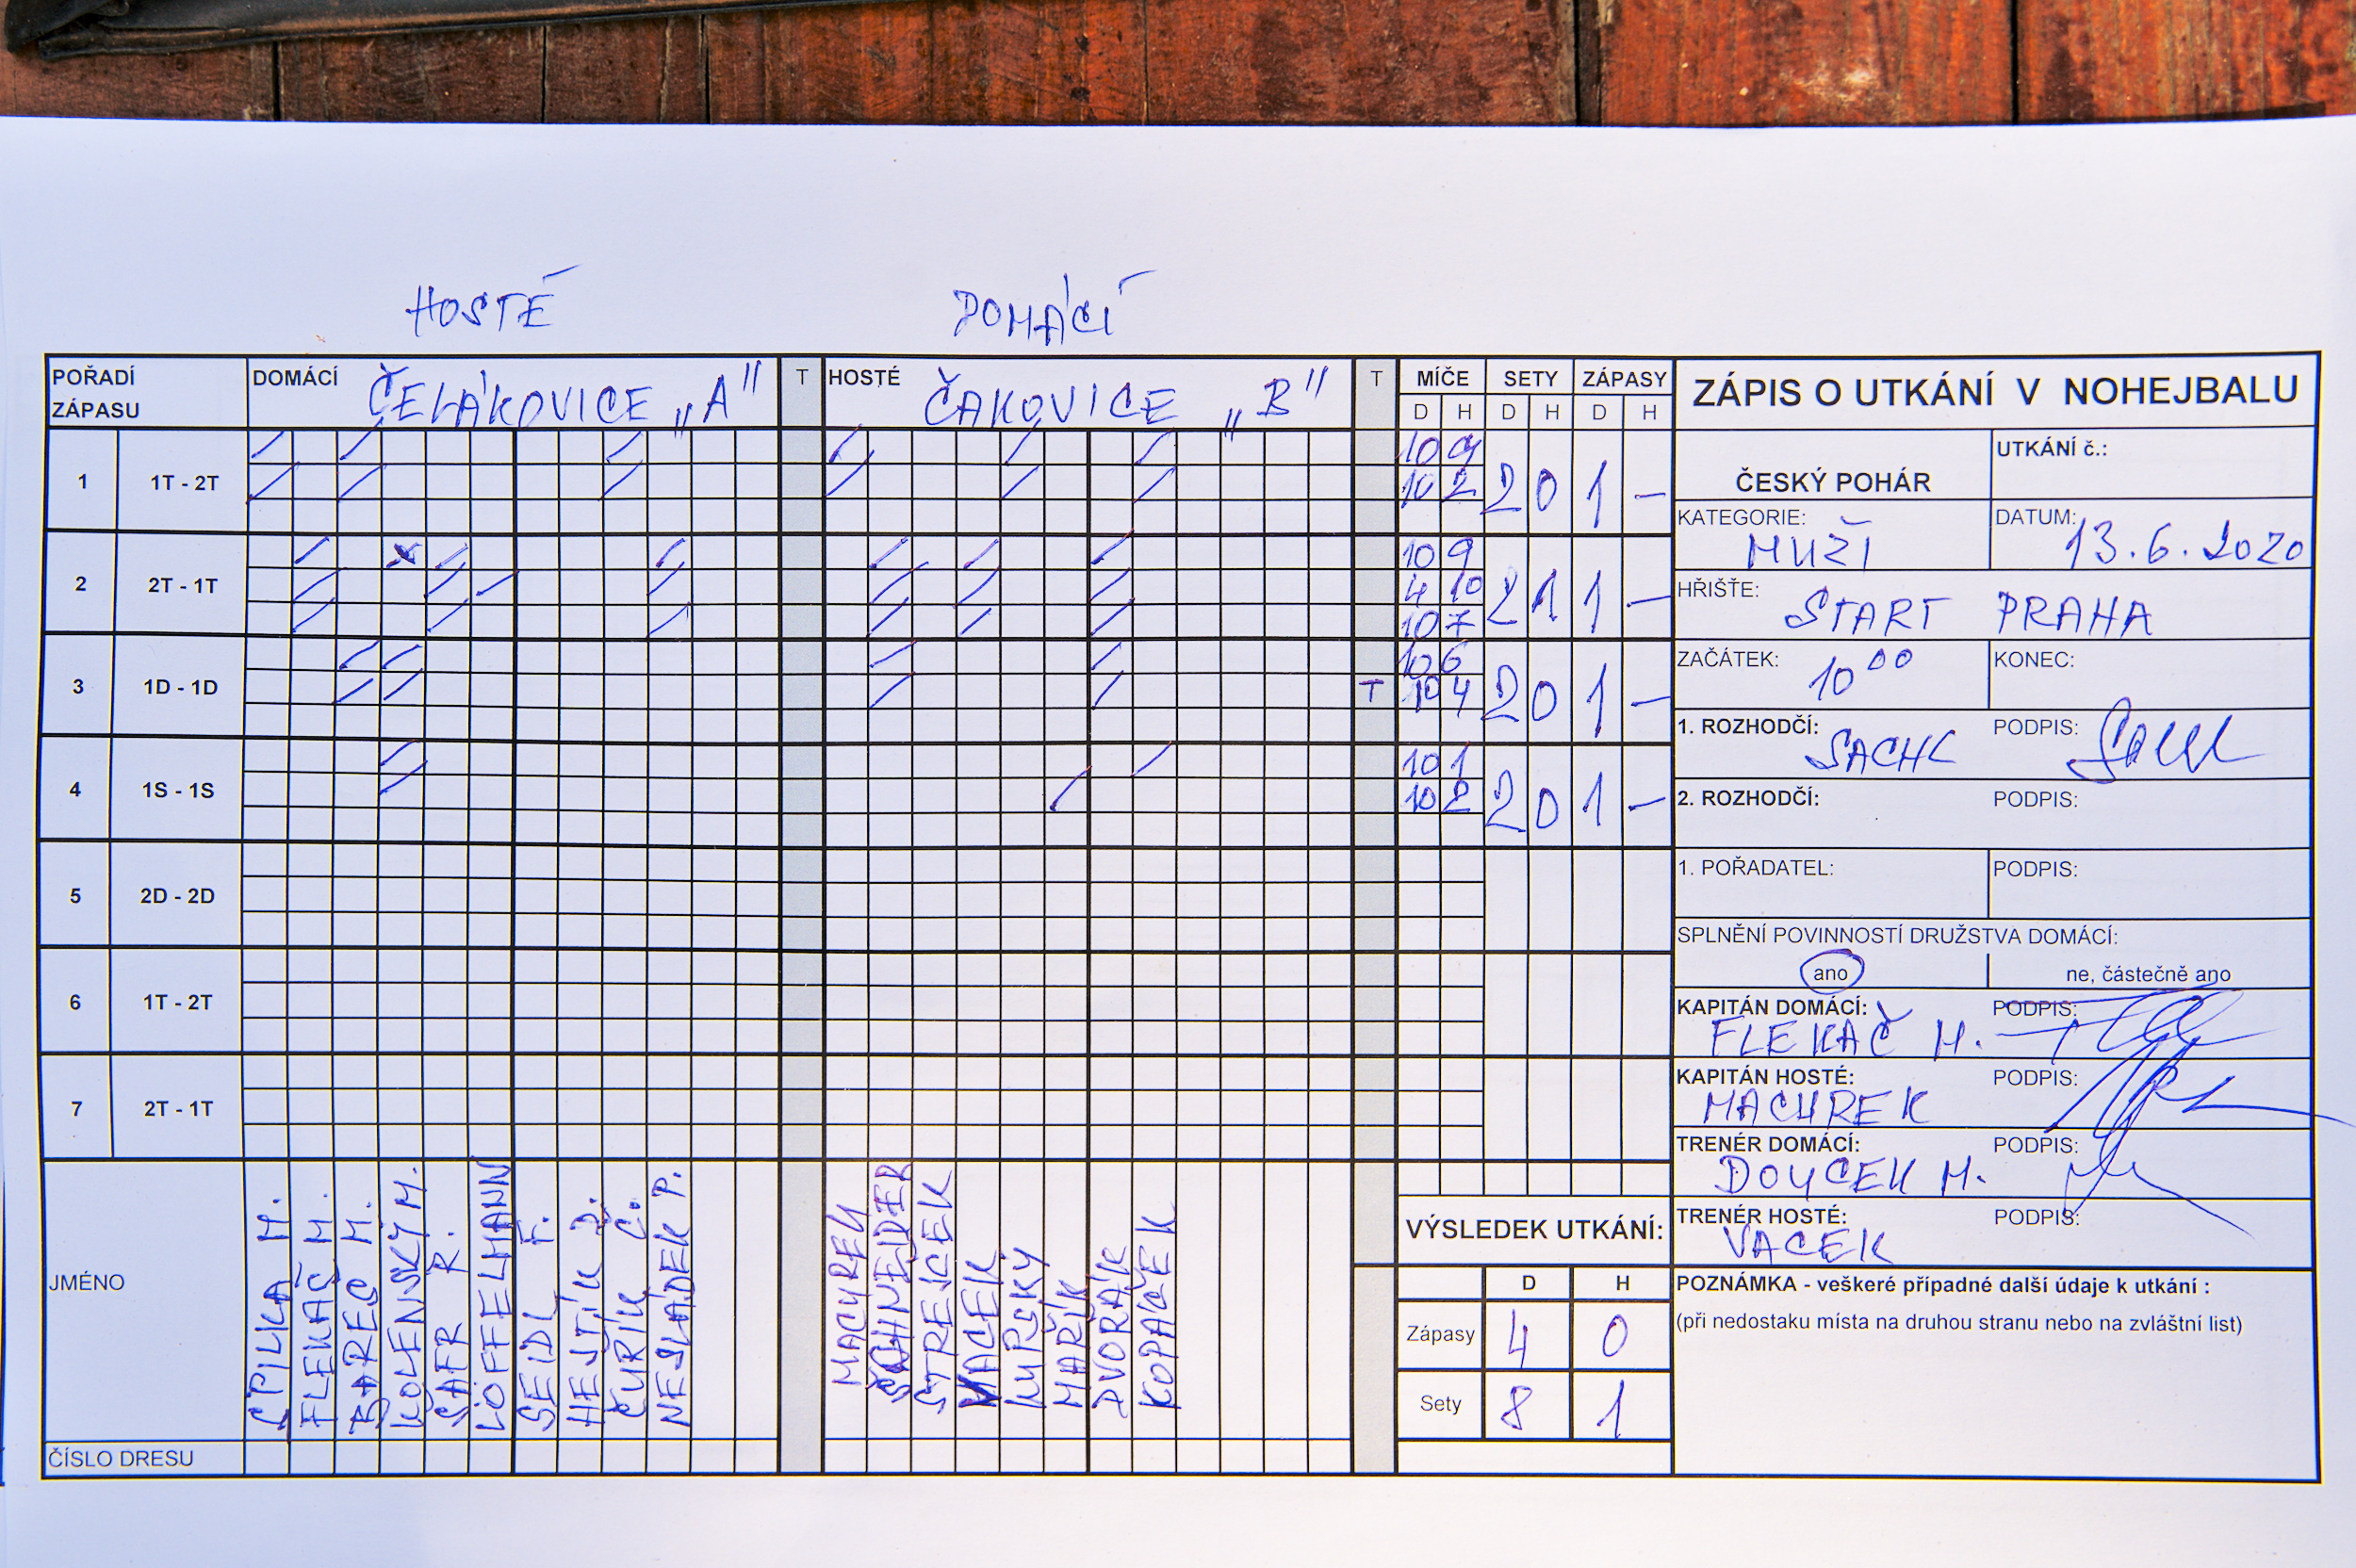 HOSTÉ DOMÁCÍ
POŘADÍ ZÁPASU DOMÁCÍ ČELÁKOVICE „A" T HOSTÉ ČAKOVICE „B" T MÍČE SETY ZÁPASY
D H D H D H
1 1T - 2T 10 9 2 0 1 –
10 2
2 2T - 1T 10 9 2 1 1 –
4 10
10 7
3 1D - 1D 10 6 2 0 1 –
T 10 4
4 1S - 1S 10 1 2 0 1 –
10 2
5 2D - 2D
6 1T - 2T
7 2T - 1T
JMÉNO
SPILKA M.
FLEKAČ M.
BAREŠ M.
KOLENSKÝ M.
ŠAFR R.
LÖFFELMANN
SEIDL F.
HEJTÍK D.
ČUŘÍK Č.
NESLÁDEK P.
MACUREK
SCHNEIDER
STREJČEK
VACEK
KUPSKÝ
MAŘÍK
DVOŘÁK
KOPÁČEK
ČÍSLO DRESU
VÝSLEDEK UTKÁNÍ:
D H
Zápasy 4 0
Sety 8 1
ZÁPIS O UTKÁNÍ V NOHEJBALU
ČESKÝ POHÁR UTKÁNÍ č.:
KATEGORIE: MUŽI DATUM: 13.6.2020
HŘIŠTĚ: START PRAHA
ZAČÁTEK: 10 00 KONEC:
1. ROZHODČÍ: SACHL PODPIS:
2. ROZHODČÍ: PODPIS:
1. POŘADATEL: PODPIS:
SPLNĚNÍ POVINNOSTÍ DRUŽSTVA DOMÁCÍ:
ano ne, částečně ano
KAPITÁN DOMÁCÍ: PODPIS:
FLEKAČ M.
KAPITÁN HOSTÉ: PODPIS:
MACUREK
TRENÉR DOMÁCÍ: PODPIS:
DOUCEK M.
TRENÉR HOSTÉ: PODPIS:
VACEK
POZNÁMKA - veškeré případné další údaje k utkání :
(při nedostaku místa na druhou stranu nebo na zvláštní list)